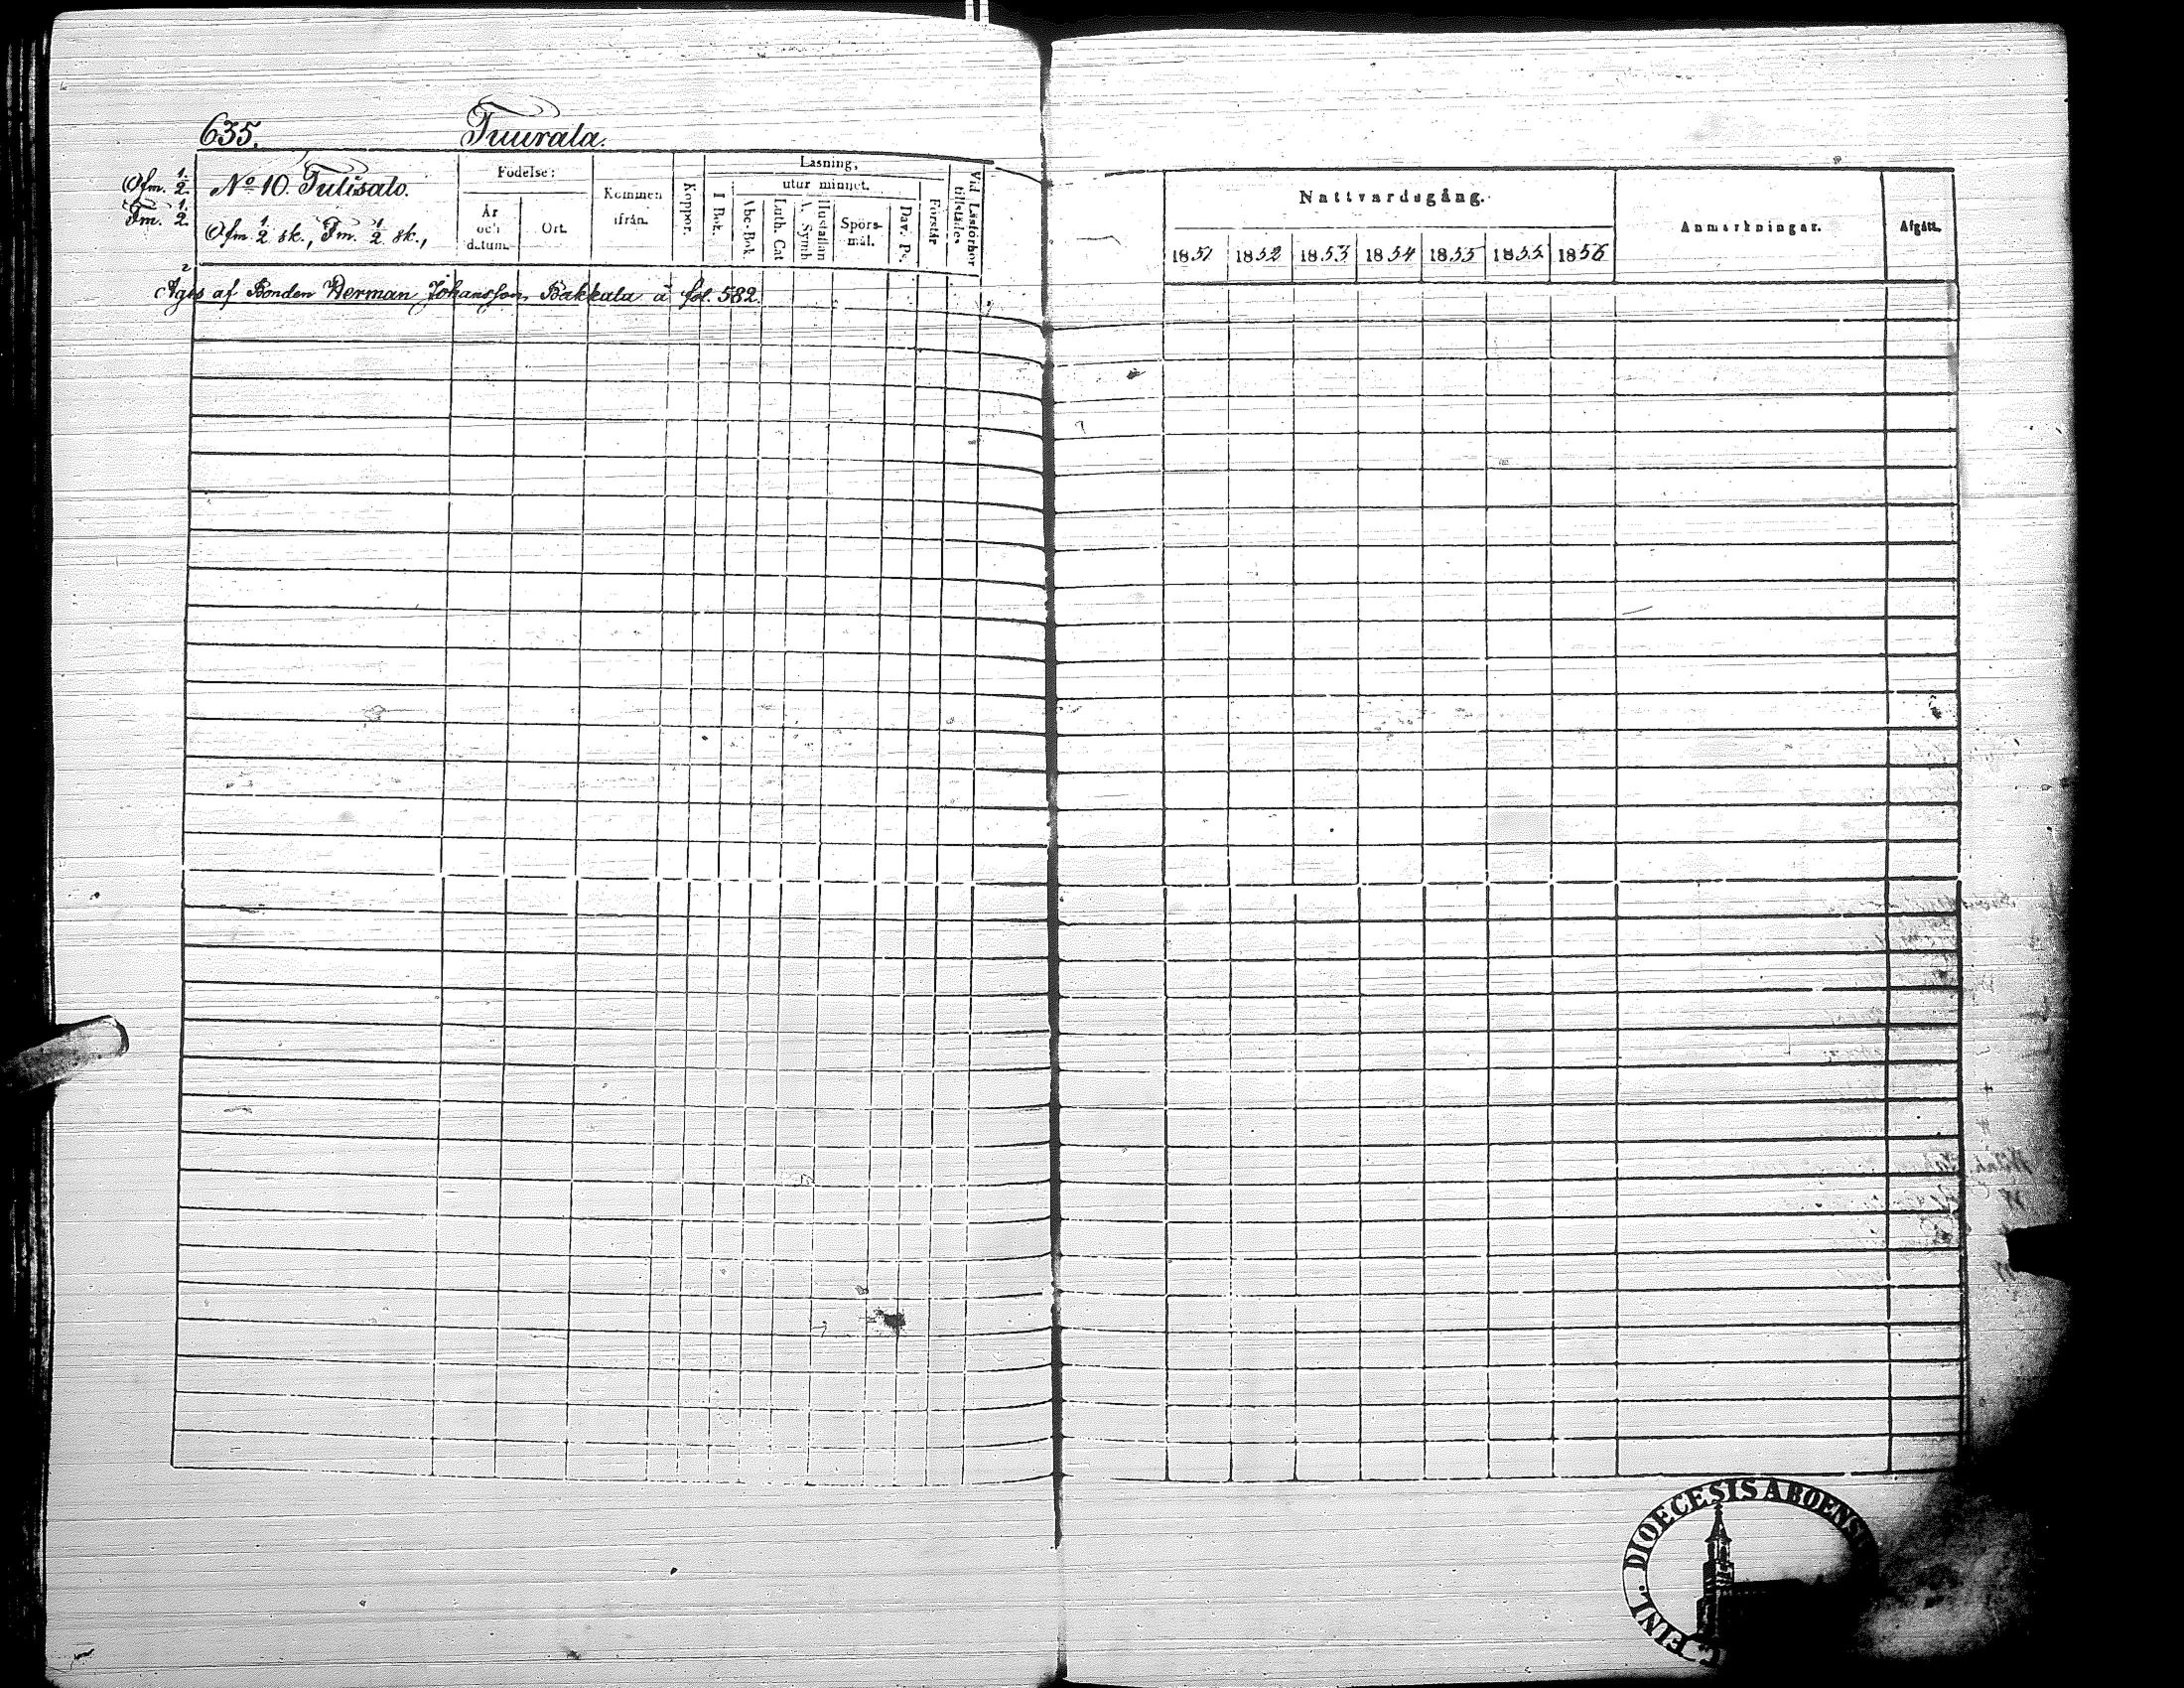 635.
Tuurala.
Öfm. 1/2.
Fm. 1/2.
No 10. Tulisalo.
Öfm. 1/2 sk., Fm. 1/2 sk.,
Födelse:
År och datum.
Ort.
Kommen ifrån.
Koppor.
Läsning,
I Bok.
utur minnet.
Abc-Bok.
Luth. Cat
Hustaflan A. Symb
Spörs-mål.
Dav. Ps.
Förstår
Vid Läsförhör tillstädes
Äges af Bonden Herman Johansson Bakkala å fol. 582.
Nattvardsgång.
1851 1852 1853 1854 1855 1855 1856
Anmärkningar.
Afgått.
FINL. DIOECESIS ABOENSI